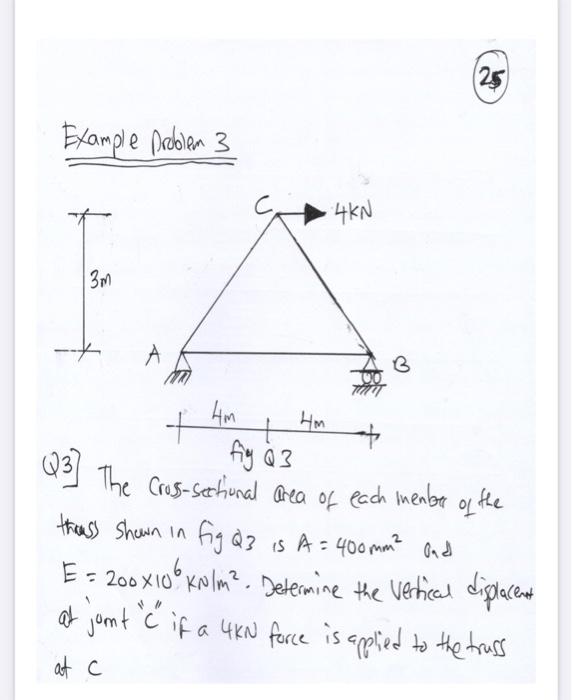 25
Example Problem 3
C
4KN
3m
A
B
4m
4m
fig Q3
Q3] The Cross-sectional area of each member of the
truss shown in fig Q3 is A = 400mm² and
E = 200×10⁶ KN/m². Determine the vertical displacement
at joint "C" if a 4KN force is applied to the truss
at C